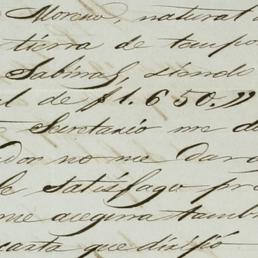 Moreno, natural d
tierra de tempo
Sabinas, siendo
l de $1.650.,,
Secretario me d
dor no me dar
le satisfago pr
me asegura tambi
carta que dirijió